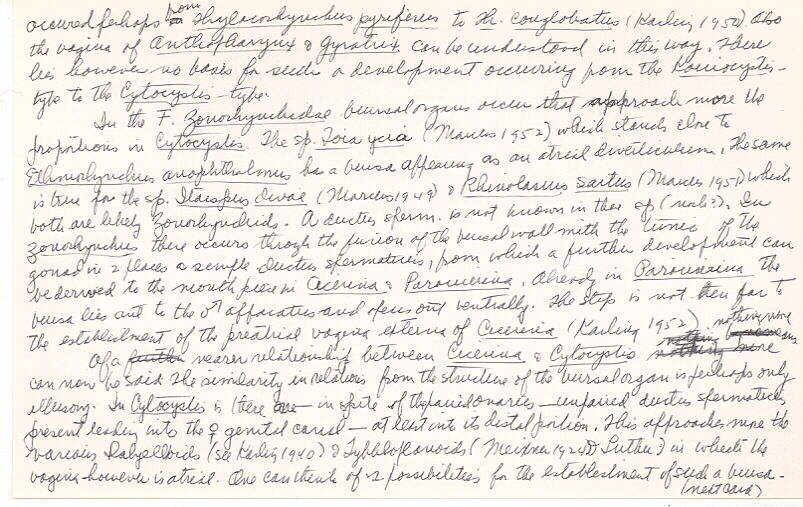 occured perhaps from Thylacorhynchus pyriferus to Th. conglobatus (Karling 1950). Also
the vagina of Antholpharynx & Gyratrix can be understood in this way. There
lies however no basis for such a development occurring from the Koinocystis-
type to the Cytocystis-type.
In the F. Zonorhynchidae bursal organs occur that approach more the
proportions in Cytocystis. The sp. Toia ycia (Marcus 1952) which stands close to
Ethmorhynchus anophthalmus has a bursa appearing as an atrial diverticulum. The same
is true for the sp. Ilaespus divae (Marcus 1949) & Rhinolasius sartus (Marcus 1951) which
both are likely Zonorhynchids. A ductus sperm. is not known in these sp (verb?). In
Zonorhynchus there occurs through the fusion of the bursal wall with the tunic of the
gonad in 2 places a simple ductus spermaticus, from which a further development can
be derived to the mouth piece in Cicerina & Paracicerina. Already in Paracicerina the
bursa lies ant to the ♂ apparatus and opens out ventrally. The step is not then far to
the establishment of the preatrial vagina externa of Cicerina (Karling 1952).
Of a nearer relationship between Cicerina & Cytocystis nothing more
can now be said. The similarity in relations from the structure of the bursal organ is perhaps only
illusory. In Cytocystis is there - in spite of the paired ovaries - unpaired ductus spermaticus
present leading into the ♀ genital canal - at least into its distal portion. This approaches more the
various Dalyelloids (see Karling 1940) & Typhloplanoids (Meixner 1924 & Luther) in which the
vagina however is atrial. One can think of 2 possibilities for the establishment of such a bursa-
(next card)